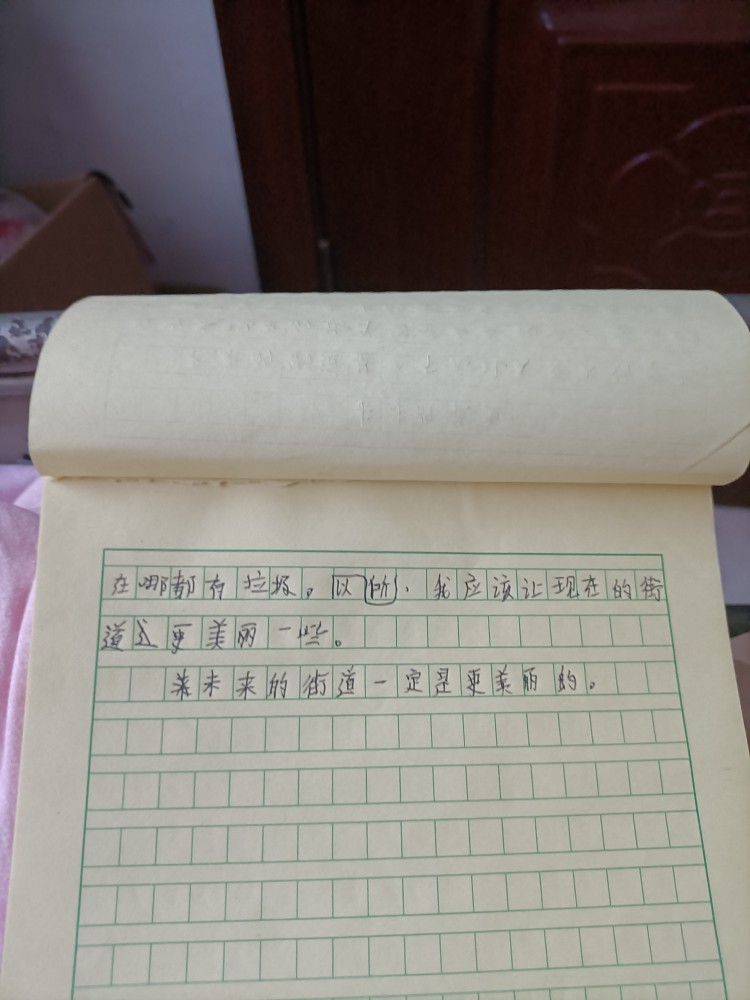 在哪都有垃圾。以所,我应该让现在的街
道过更美丽一些。
未来的街道一定是更美丽的。